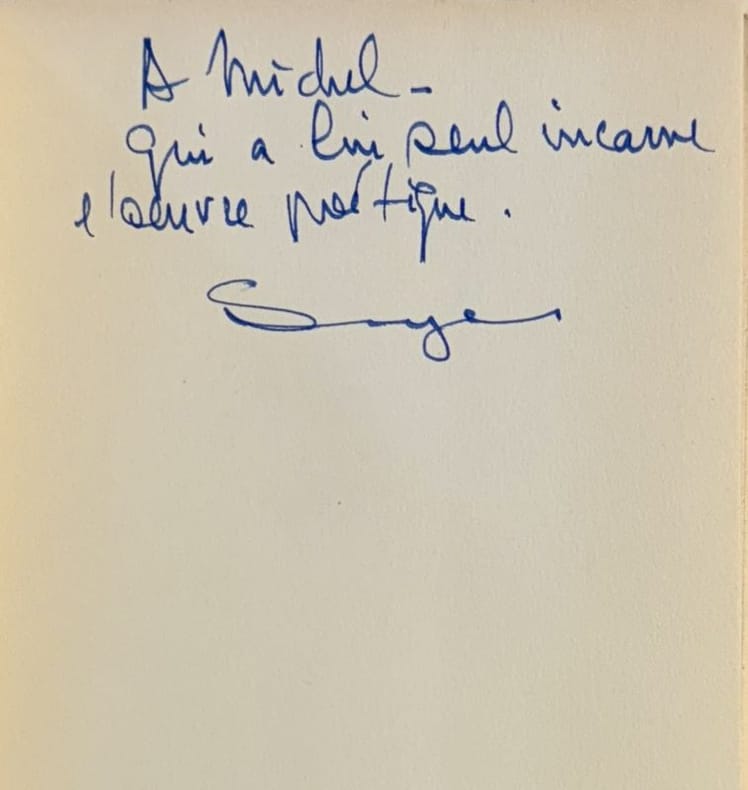 A Michel -
qui a lui seul incarne
l'oeuvre poétique.